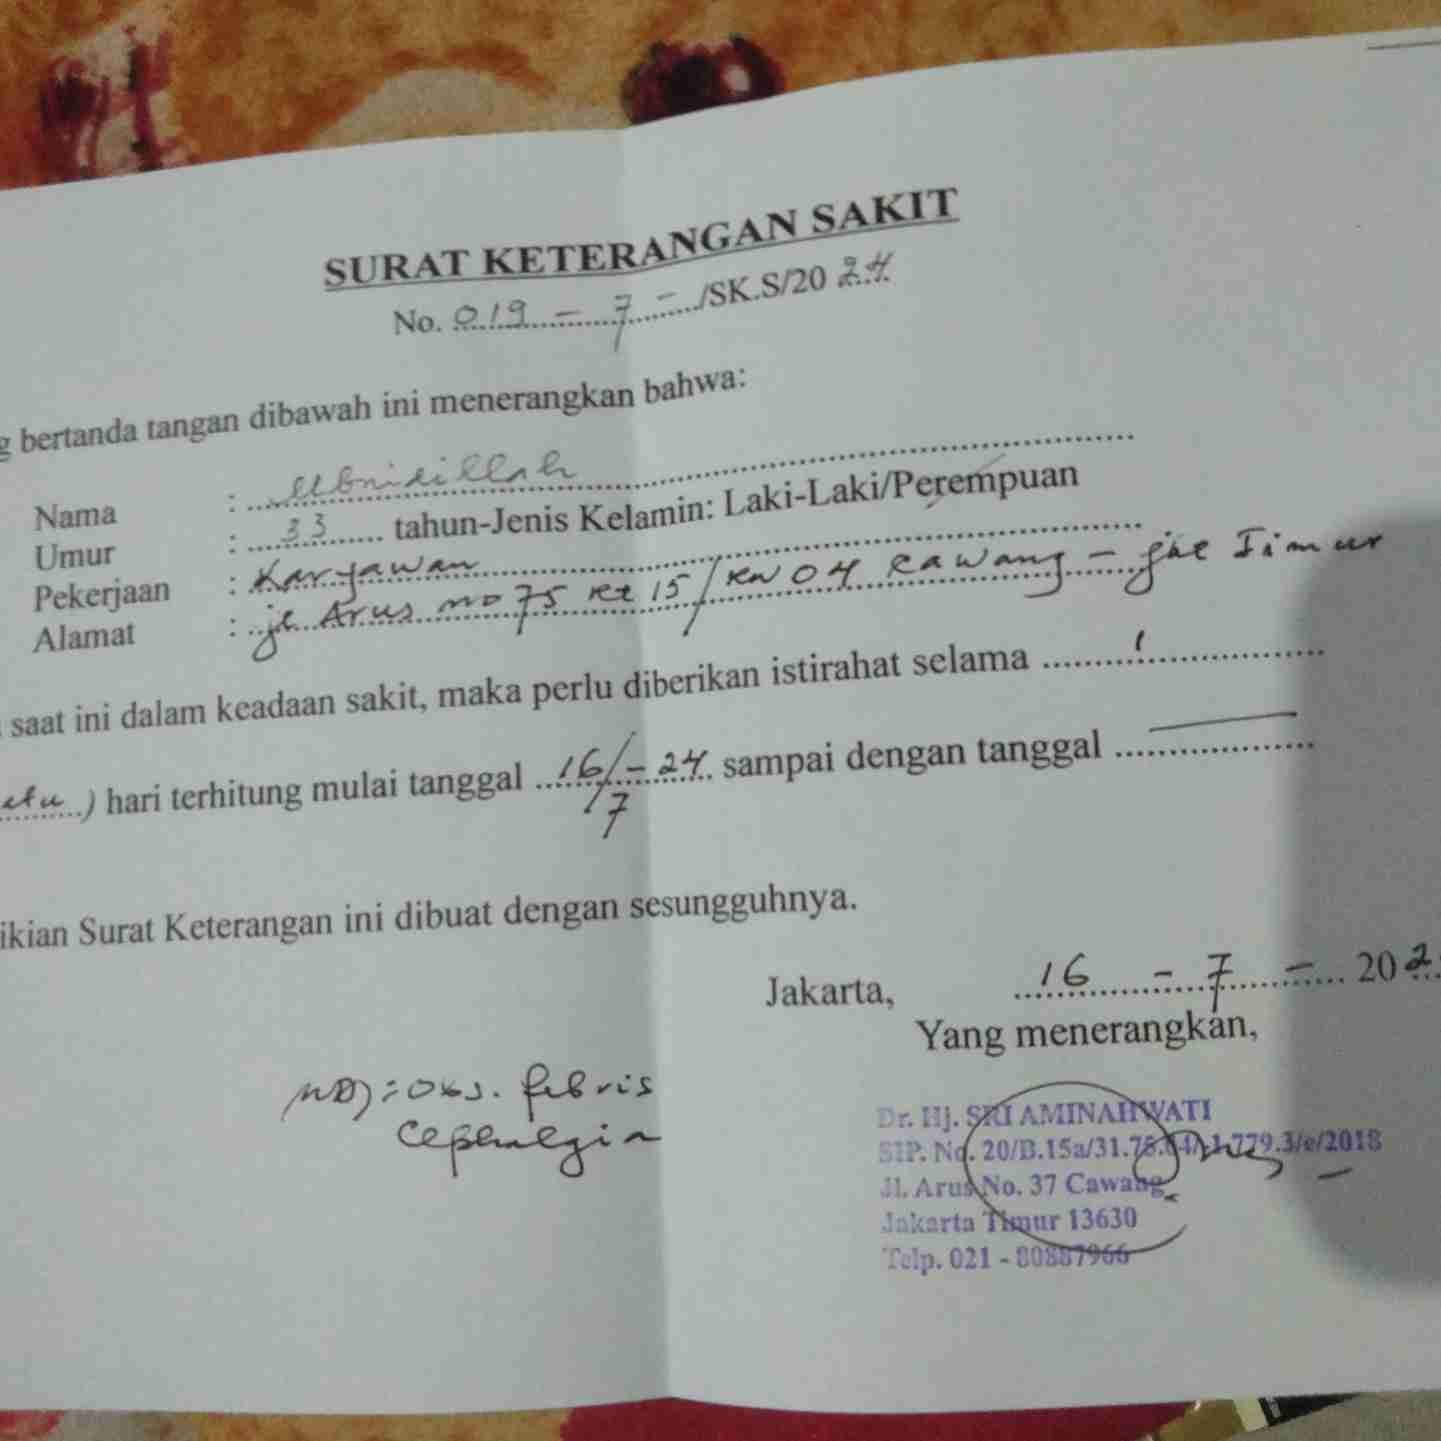 SURAT KETERANGAN SAKIT
No. 019 - 7 - /SK.S/20 24
g bertanda tangan dibawah ini menerangkan bahwa:
Nama :
Umur : 33 tahun-Jenis Kelamin: Laki-Laki/Perempuan
Pekerjaan : Karyawan
Alamat : jl Arus no 75 Rt 15/RW 04 Cawang - jkt Timur
saat ini dalam keadaan sakit, maka perlu diberikan istirahat selama 1
atu ) hari terhitung mulai tanggal 16/7 - 24 sampai dengan tanggal —
ikian Surat Keterangan ini dibuat dengan sesungguhnya.
Jakarta, 16 - 7 - 202
Yang menerangkan,
Obs. febris
Cephalgia
Dr. Hj. SRI AMINAHWATI
SIP. No. 20/B.15a/31.75.04/-1.779.3/e/2018
Jl. Arus No. 37 Cawang
Jakarta Timur 13630
Telp. 021 - 80887966